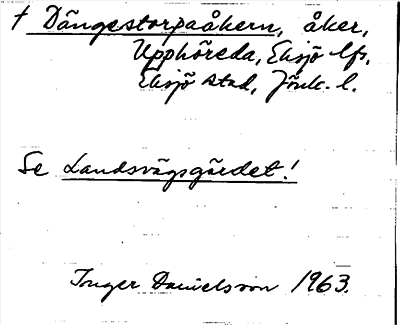 † Dängestorpaåkern, åker,
Upphöreda, Eksjö lfs.
Eksjö stad, Jönk. l.
Se Landsvägsgärdet!
Inger Danielsson 1963.